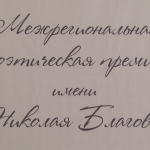 Межрегиональная
оэтическая преми
имени
Николая Благов